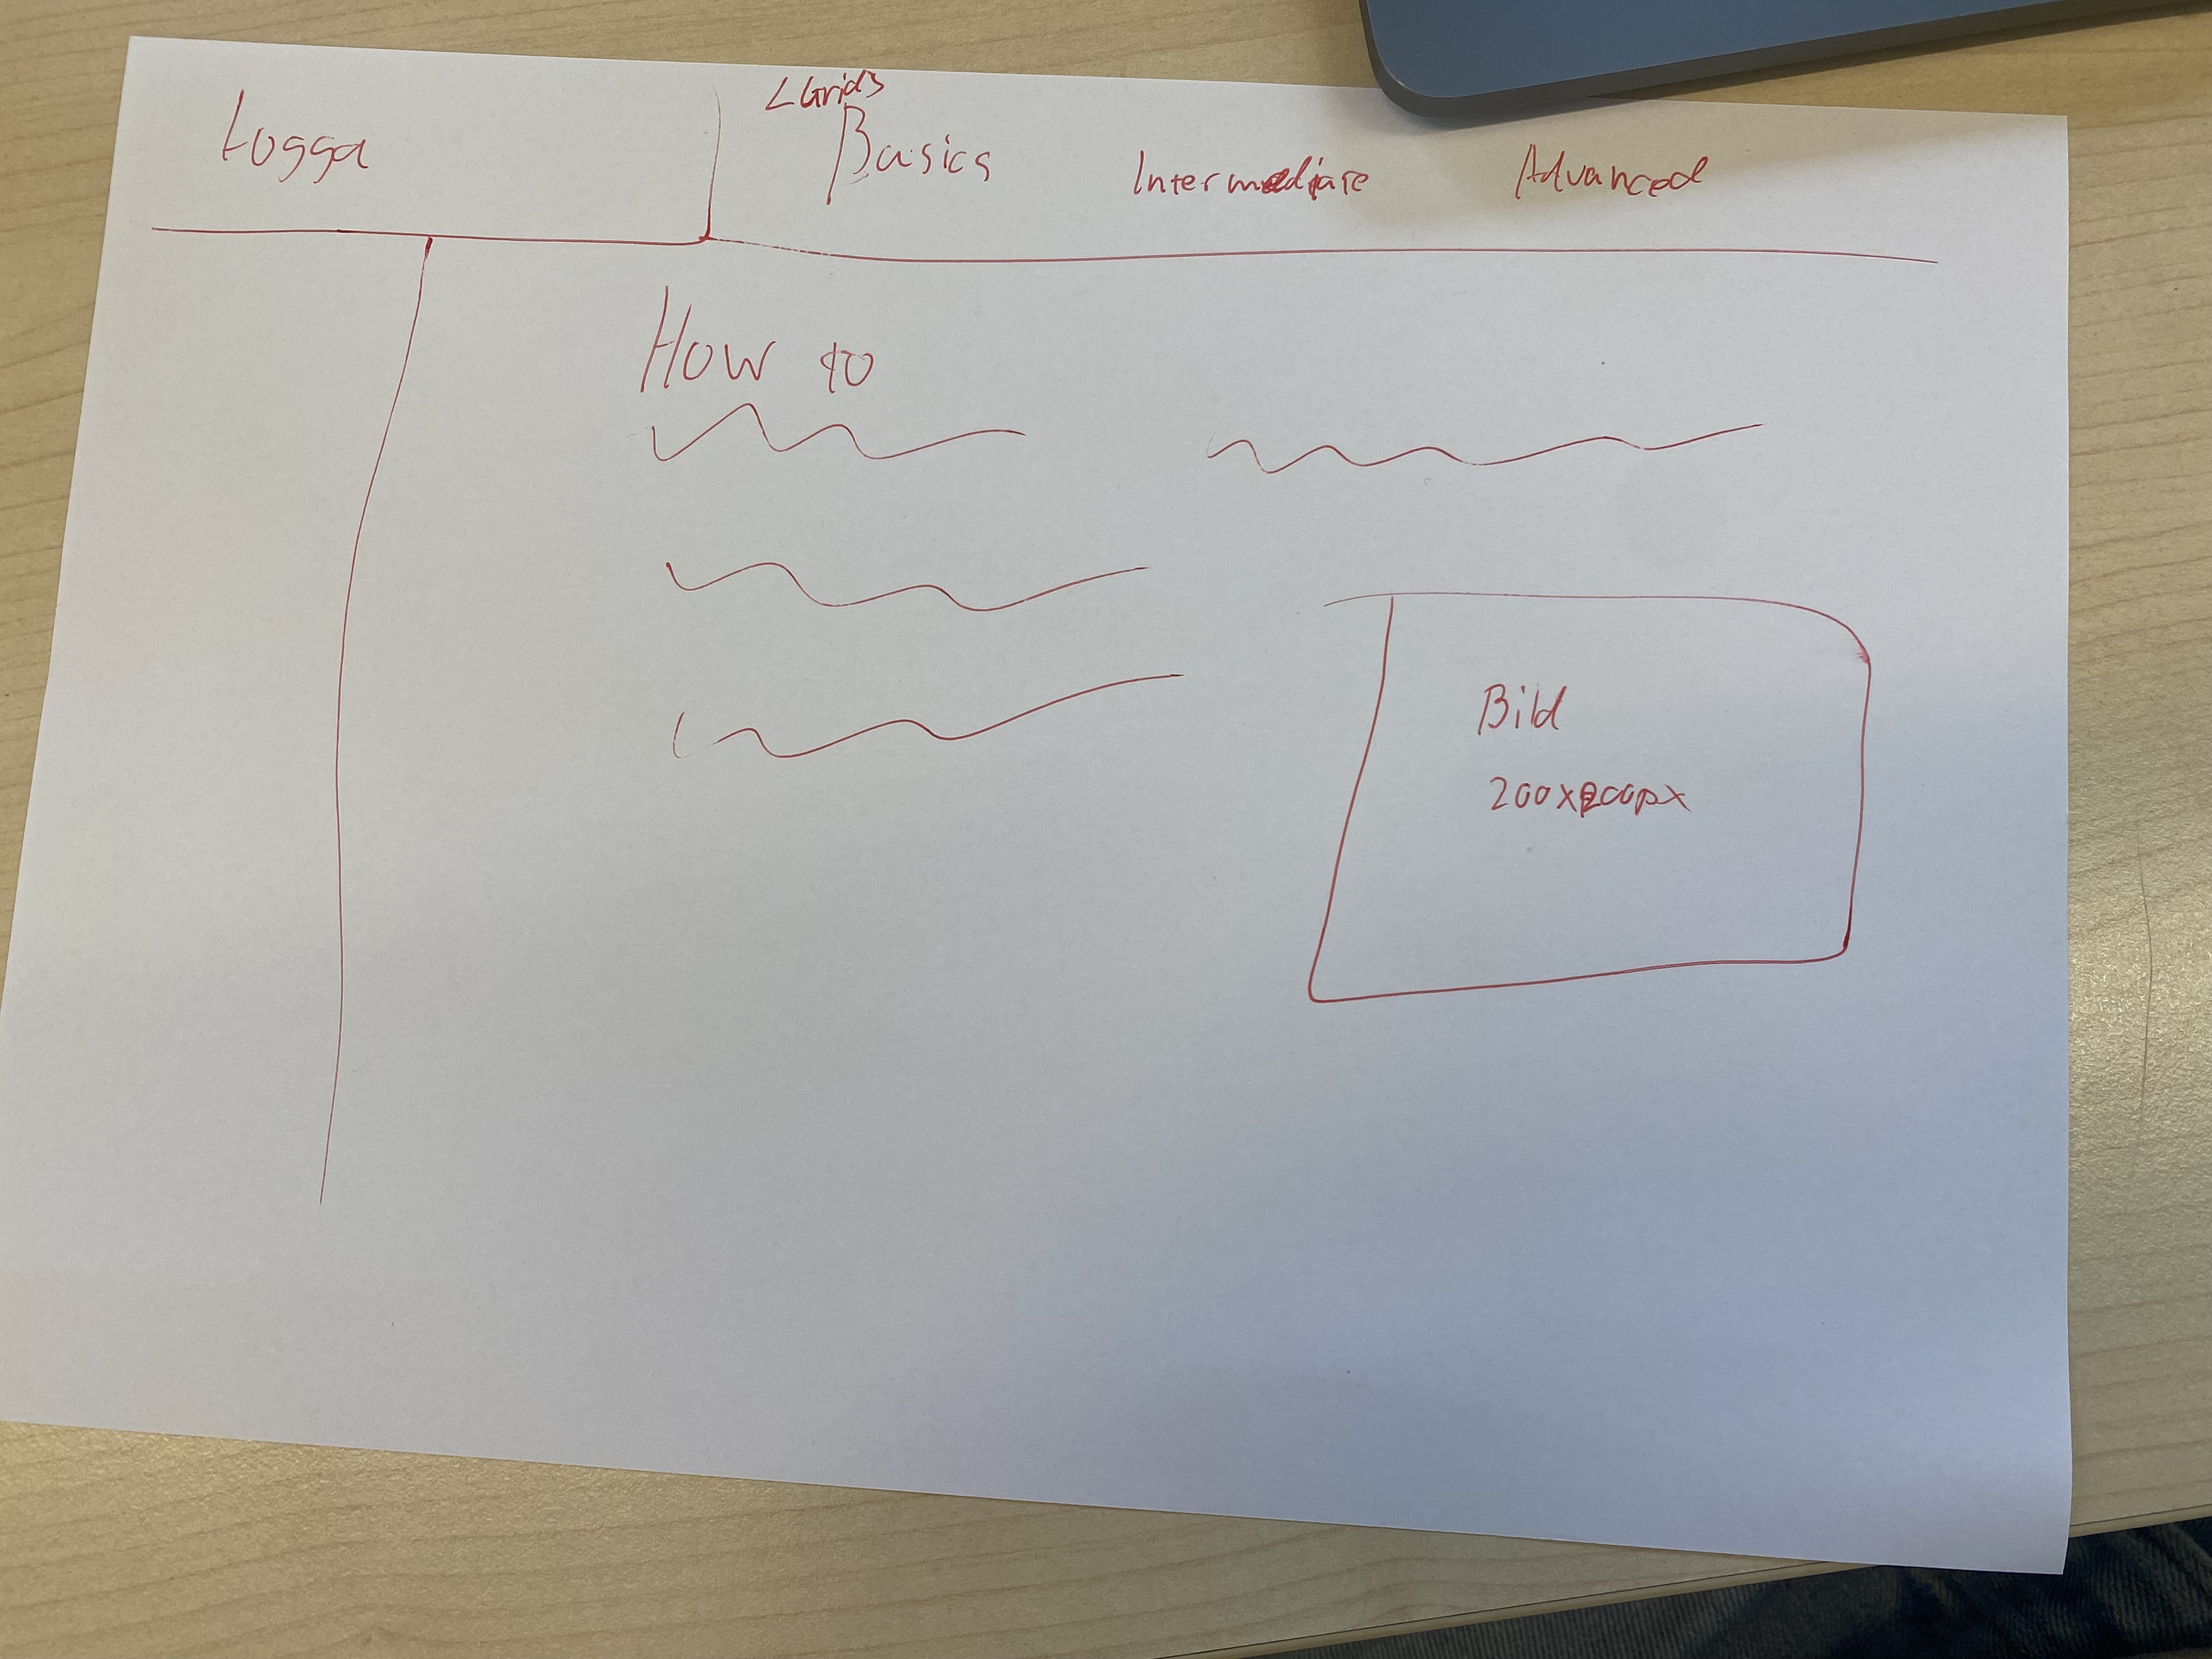 Logga
Basics Intermediate Advanced
How to
Bild
200x200px